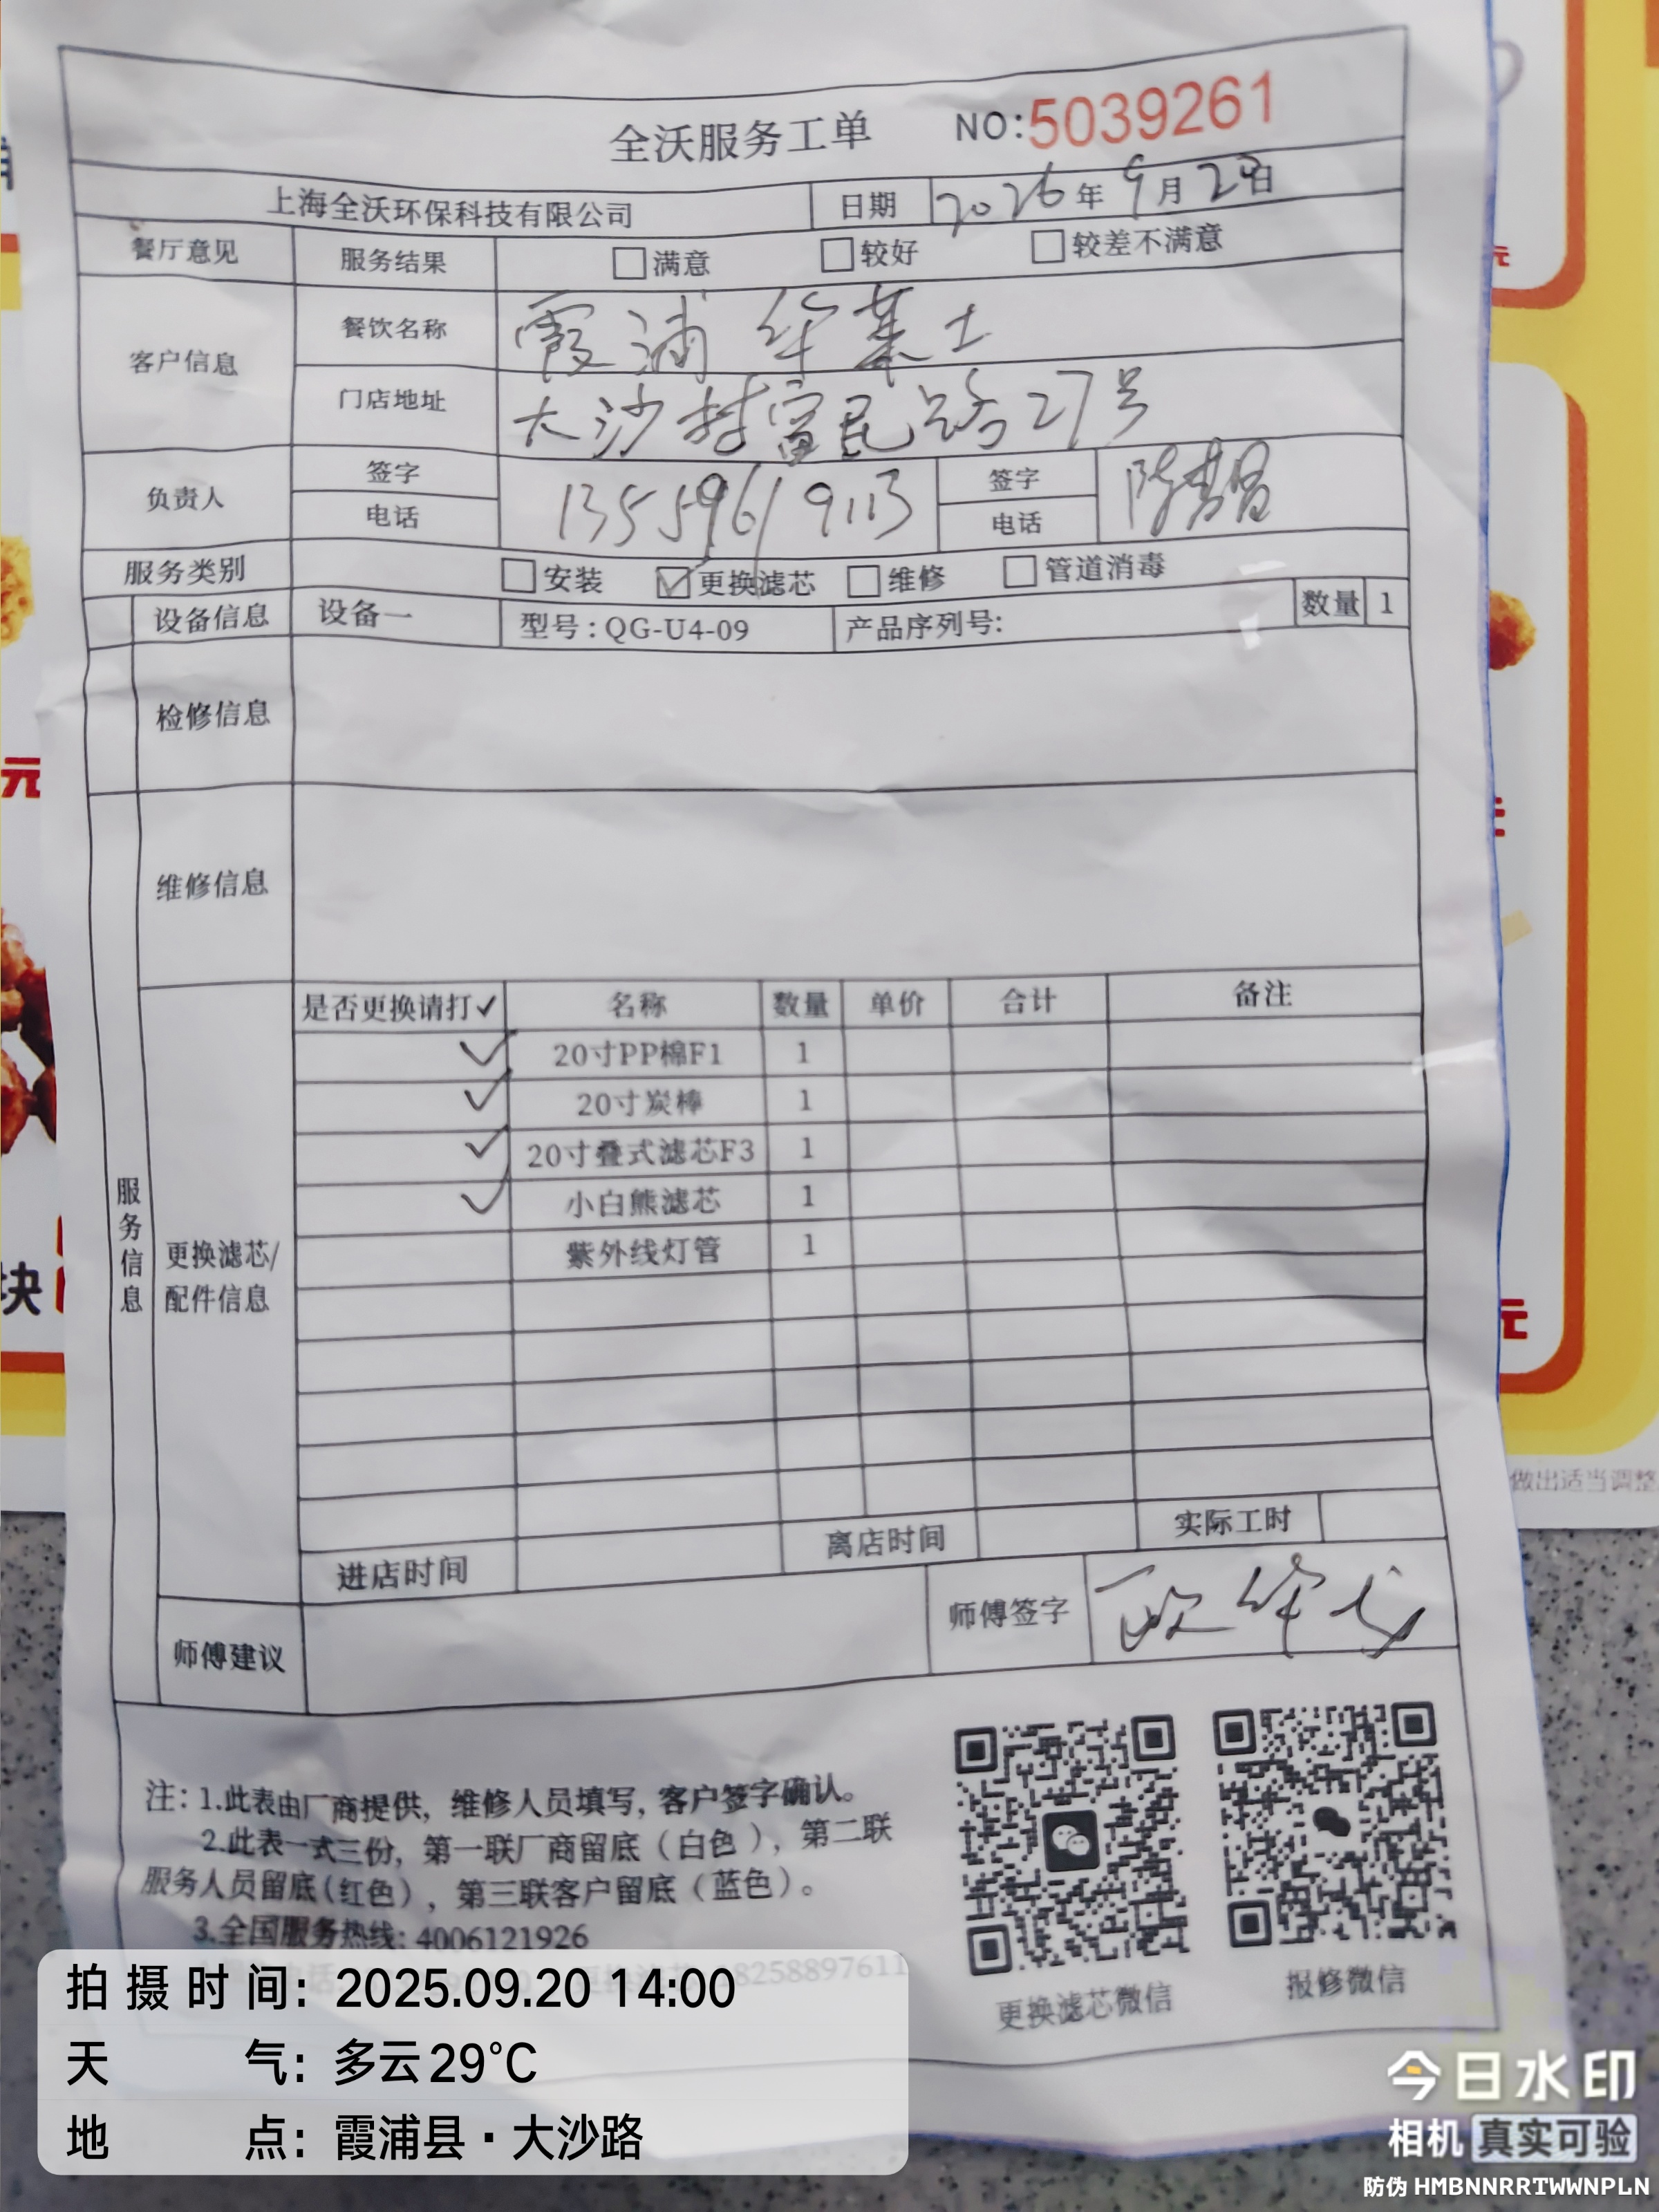 全沃服务工单 NO:5039261
上海全沃环保科技有限公司 日期 2026年9月20日
餐厅意见 服务结果 □满意 □较好 □较差不满意
客户信息 餐饮名称 霞浦华莱士
门店地址 大沙村富民路27号
负责人 签字 电话 13559619113 签字 电话 陈
服务类别 □安装 ☑更换滤芯 □维修 □管道消毒
设备信息 设备一 型号:QG-U4-09 产品序列号: 数量 1
检修信息
维修信息
服务信息
更换滤芯/
配件信息
是否更换请打✓ 名称 数量 单价 合计 备注
✓ 20寸PP棉F1 1
✓ 20寸炭棒 1
✓ 20寸叠式滤芯F3 1
✓ 小白熊滤芯 1
紫外线灯管 1
进店时间 离店时间 实际工时
师傅建议 师傅签字 欧华
注: 1.此表由厂商提供, 维修人员填写, 客户签字确认。
2.此表一式三份, 第一联厂商留底（白色）, 第二联
服务人员留底(红色), 第三联客户留底（蓝色）。
3.全国服务热线: 4006121926
18258897611
更换滤芯微信 报修微信
拍摄时间: 2025.09.20 14:00
天气: 多云29°C
地点: 霞浦县·大沙路
今日水印
相机 真实可验
防伪 HMBNNRRTWWNPLN
元
块
元
做出适当调整